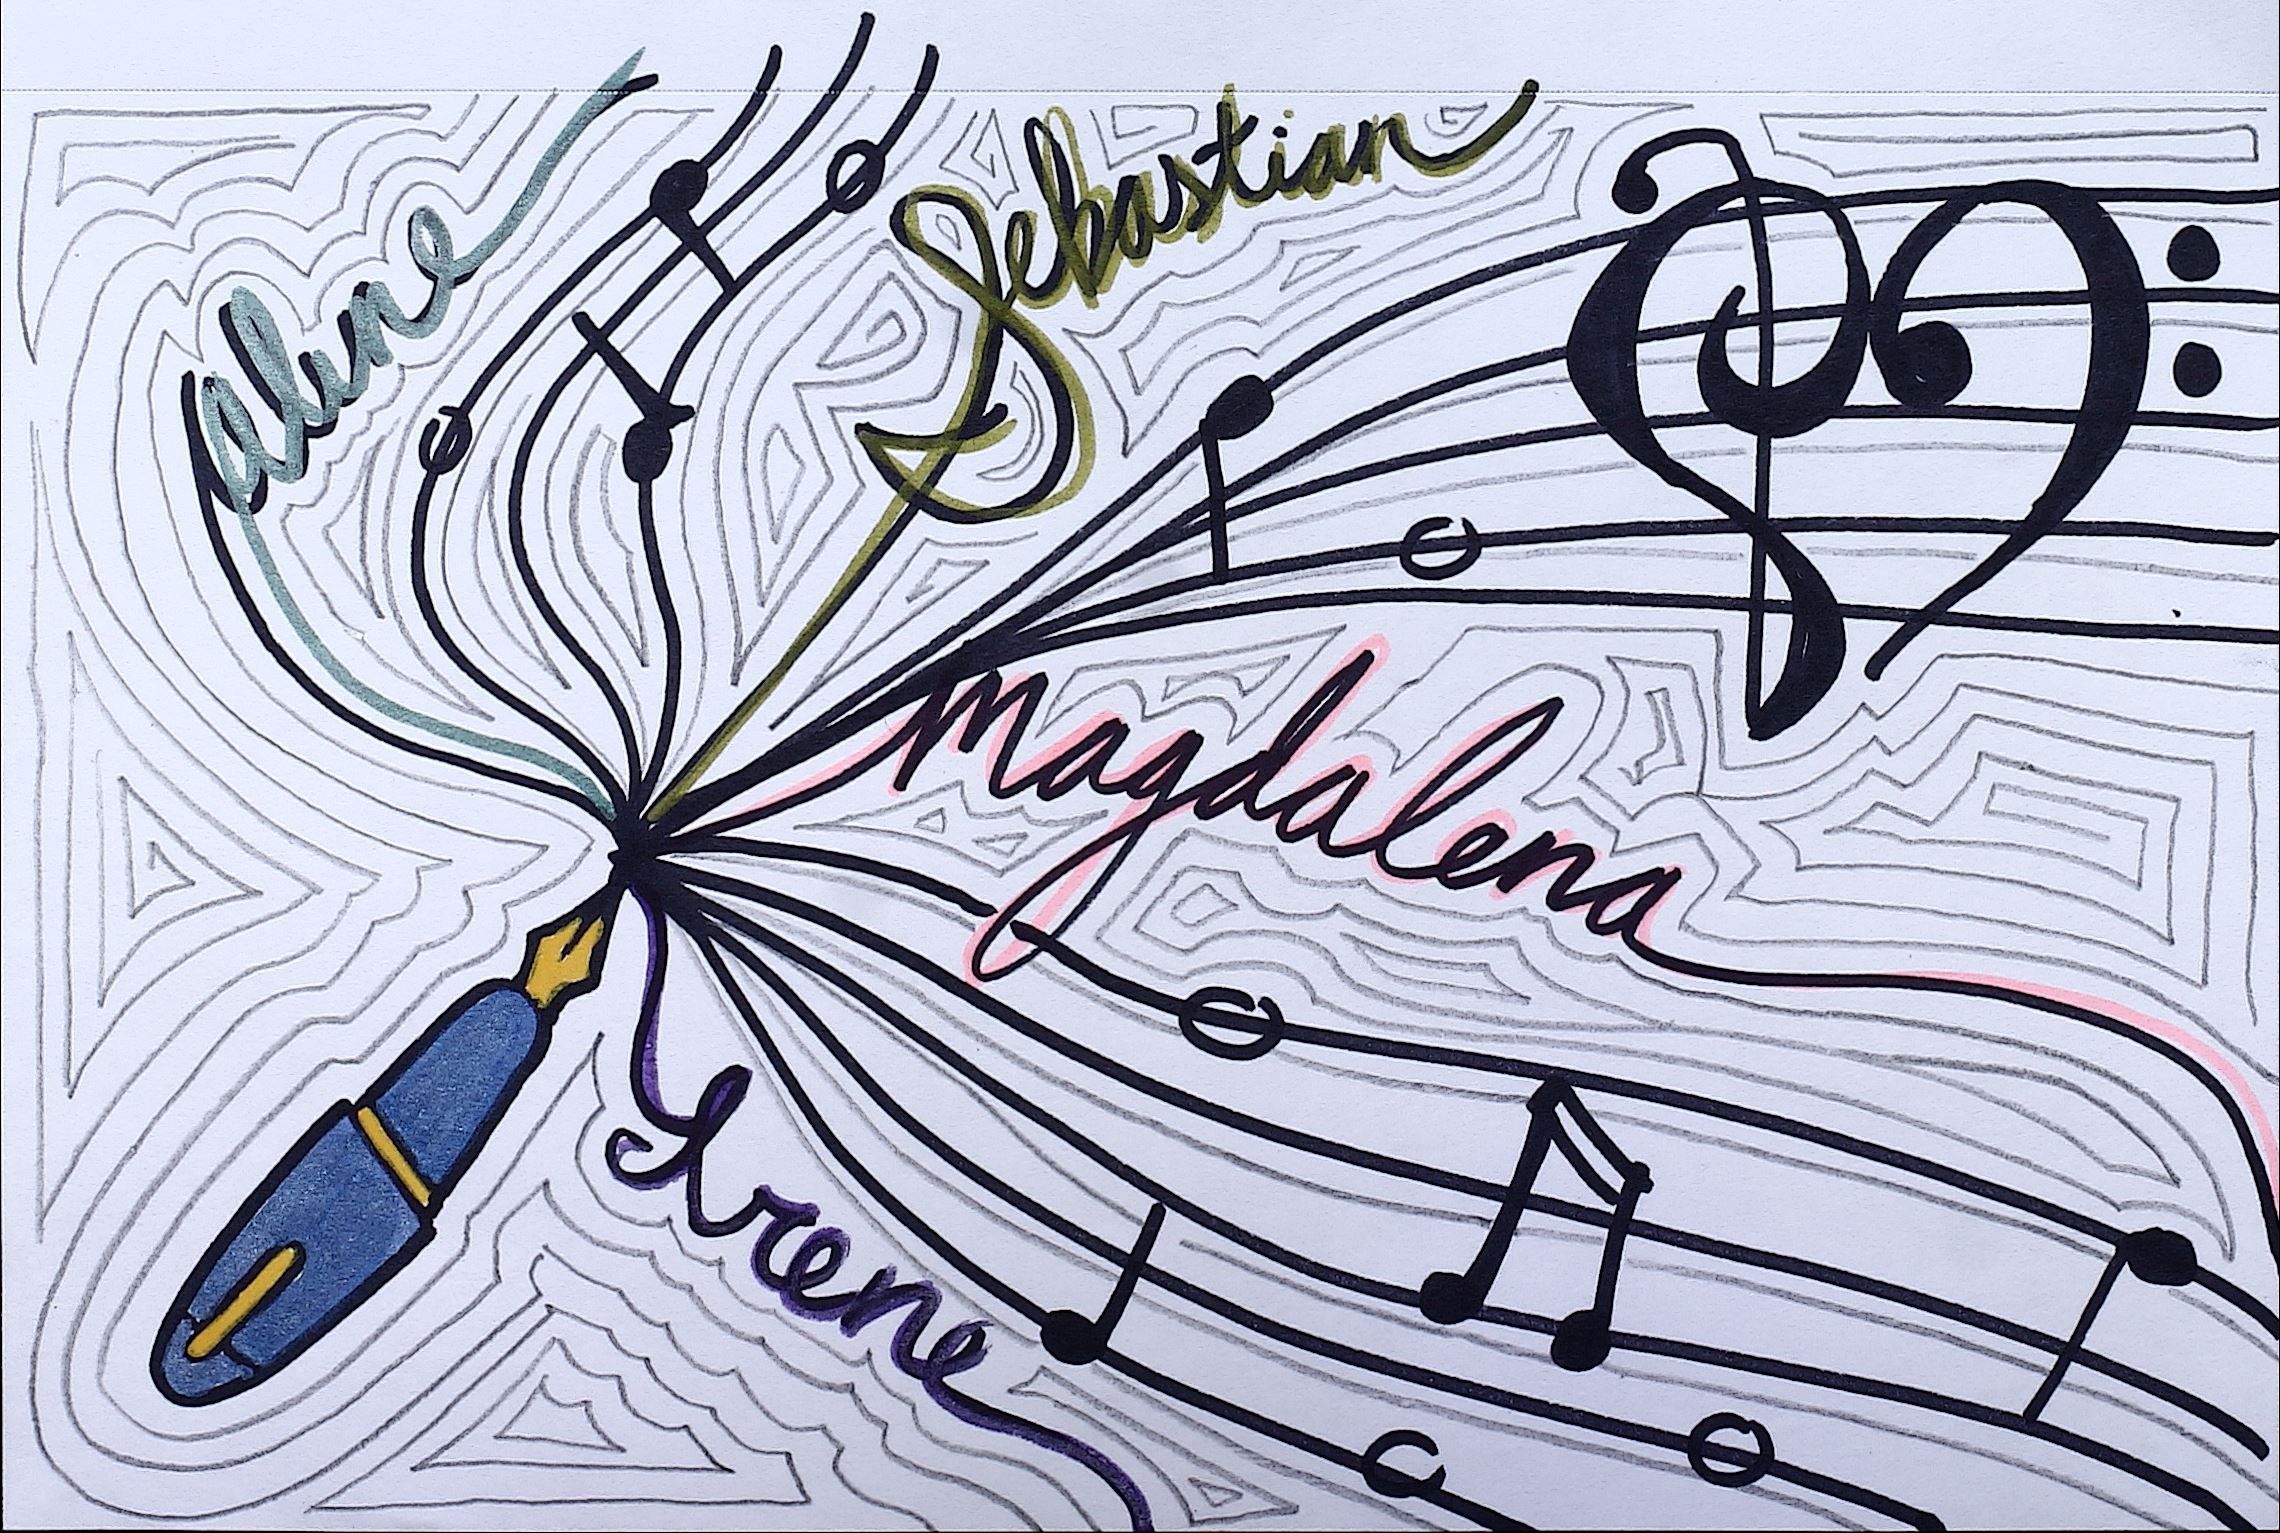 Aline
Sebastian
Magdalena
Irene